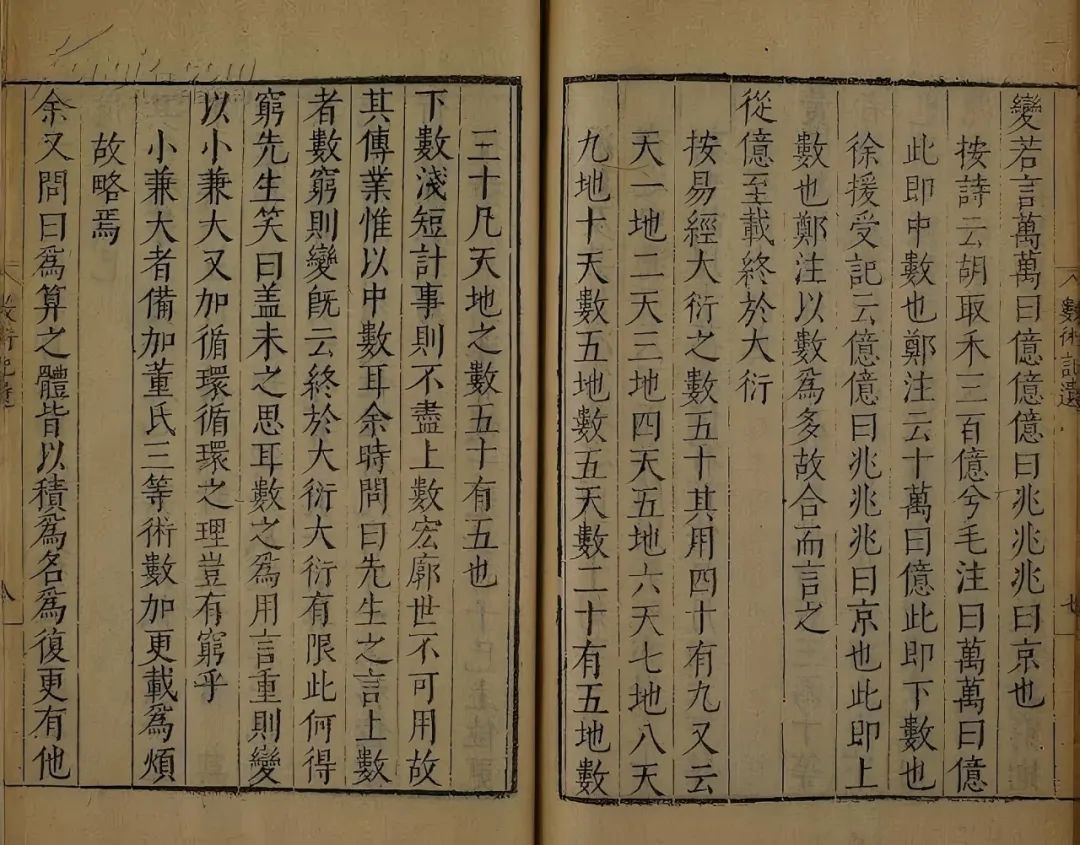 變若言萬萬曰億億億曰兆兆兆曰京也
按詩云胡取禾三百億兮毛注曰萬萬曰億
此即中數也鄭注云十萬曰億此即下數也
徐援受記云億億曰兆兆兆曰京也此即上
數也鄭注以數爲多故合而言之
從億至載終於大衍
按易經大衍之數五十其用四十有九又云
天一地二天三地四天五地六天七地八天
九地十天數五地數五天數二十有五地數
數術記遺
七
三十凡天地之數五十有五也
下數淺短計事則不盡上數宏廓世不可用故
其傳業惟以中數耳余時問曰先生之言上數
者數窮則變旣云終於大衍大衍有限此何得
窮先生笑曰盖未之思耳數之爲用言重則變
以小兼大又加循環循環之理豈有窮乎
小兼大者備加董氏三等術數加更載爲煩
故略焉
余又問曰爲算之體皆以積爲名爲復更有他
數術記遺
八